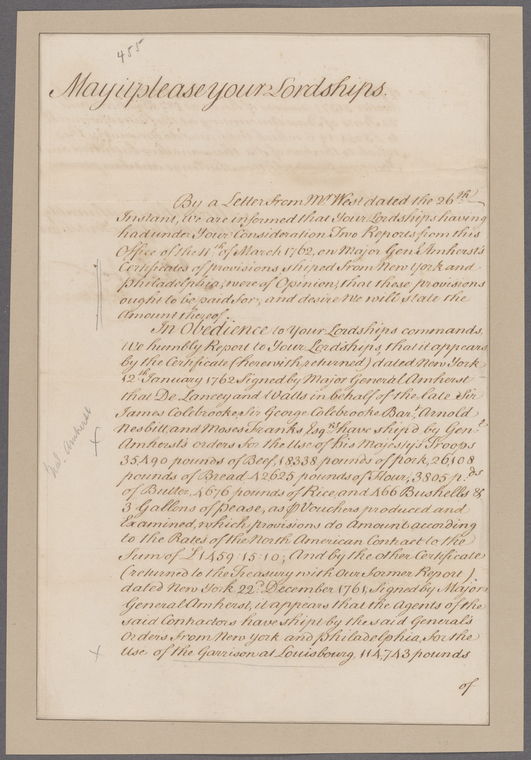 455
May it please Your Lordships.
By a Letter from Mr. West dated the 26th
Instant, we are informed that Your Lordships having
had under Your Consideration Two Reports from this
Office of the 11th of March 1762, on Major Genl. Amherst's
Certificates of provisions shiped from New York and
Philadelphia, were of Opinion, that those provisions
ought to be paid for, and desire We will state the
Amount thereof.
In Obedience to Your Lordships commands,
We humbly Report to Your Lordships that it appears
by the Certificate (herewith returned) dated New York
12th January 1762 Signed by Major General Amherst
that De Lancey and Watts in behalf of the late Sir
James Colebrooke, Sir George Colebrooke Bart. Arnold
Nesbitt and Moses Franks Esqrs. have ship'd by Genl.
Amherst's orders for the Use of his Majesty's Troops
35,490 pounds of Beef, 18338 pounds of Pork, 26,108
pounds of Bread 42625 pounds of Flour, 3805 p.ds
of Butter, 4676 pounds of Rice, and 466 Bushells &
3 Gallons of Pease, as P Vouchers produced and
Examined, which provisions do Amount according
to the Rates of the North American Contract to the
Sum of £1459:15:10; And by the other Certificate
(returned to the Treasury with Our former Report)
dated New York 22d. December 1761, Signed by Major
General Amherst, it appears that the Agents of the
said Contractors have shipt by the said General's
Orders from New York and Philadelphia, for the
Use of the Garrison at Louisbourg, 114,743 pounds
of
Amherst